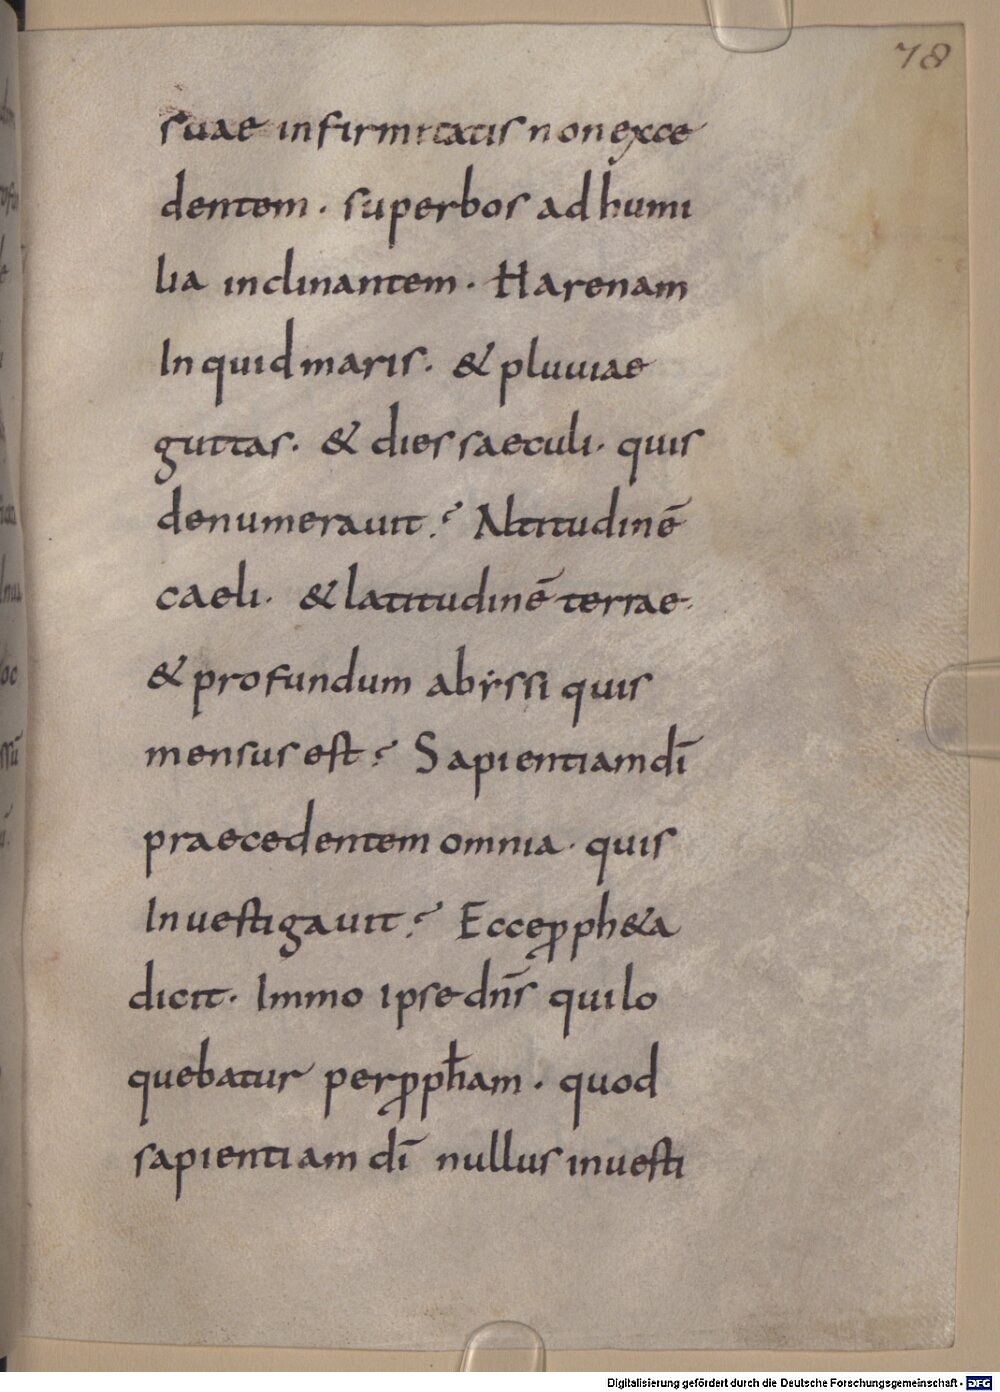 78
suae infirmitatis non exce
dentem · superbos ad humi
lia inclinantem · Harenam
Inquid maris · & pluuiae
guttas · & dies saeculi · quis
denumerauit? Altitudinē
caeli · & latitudinē terrae ·
& profundum abẏssi quis
mensus est? Sapientiam dī
praecedentem omnia · quis
Inuestigauit? Ecce ꝓph&a
dicit · Immo ipse dn̄s qui lo
quebatur per ꝓph̄am · quod
sapientiam dī nullus inuesti
Digitalisierung gefördert durch die Deutsche Forschungsgemeinschaft - DFG